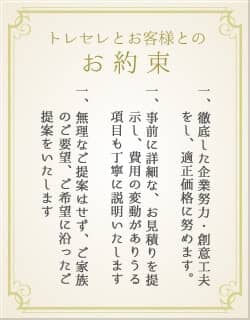 トレセレとお客様との
お約束
一、徹底した企業努力・創意工夫
をし、適正価格に努めます。
一、事前に詳細な、お見積りを提
示し、費用の変動がありうる
項目も丁寧に説明いたします
一、無理なご提案はせず、ご家族
のご要望、ご希望に沿ったご
提案をいたします